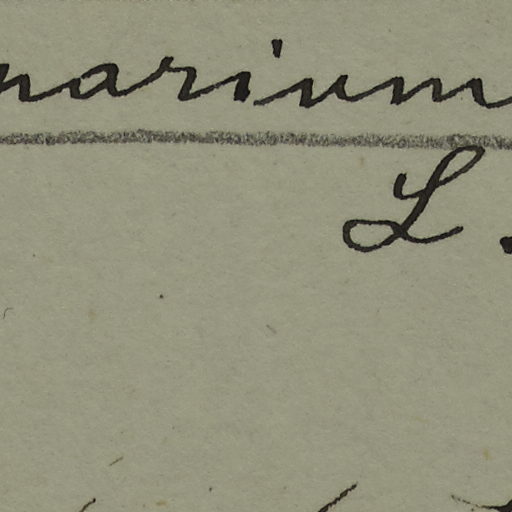 narium
L.